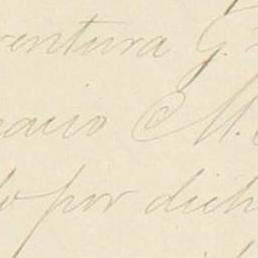 ventura G.
nacio M.
do por dich